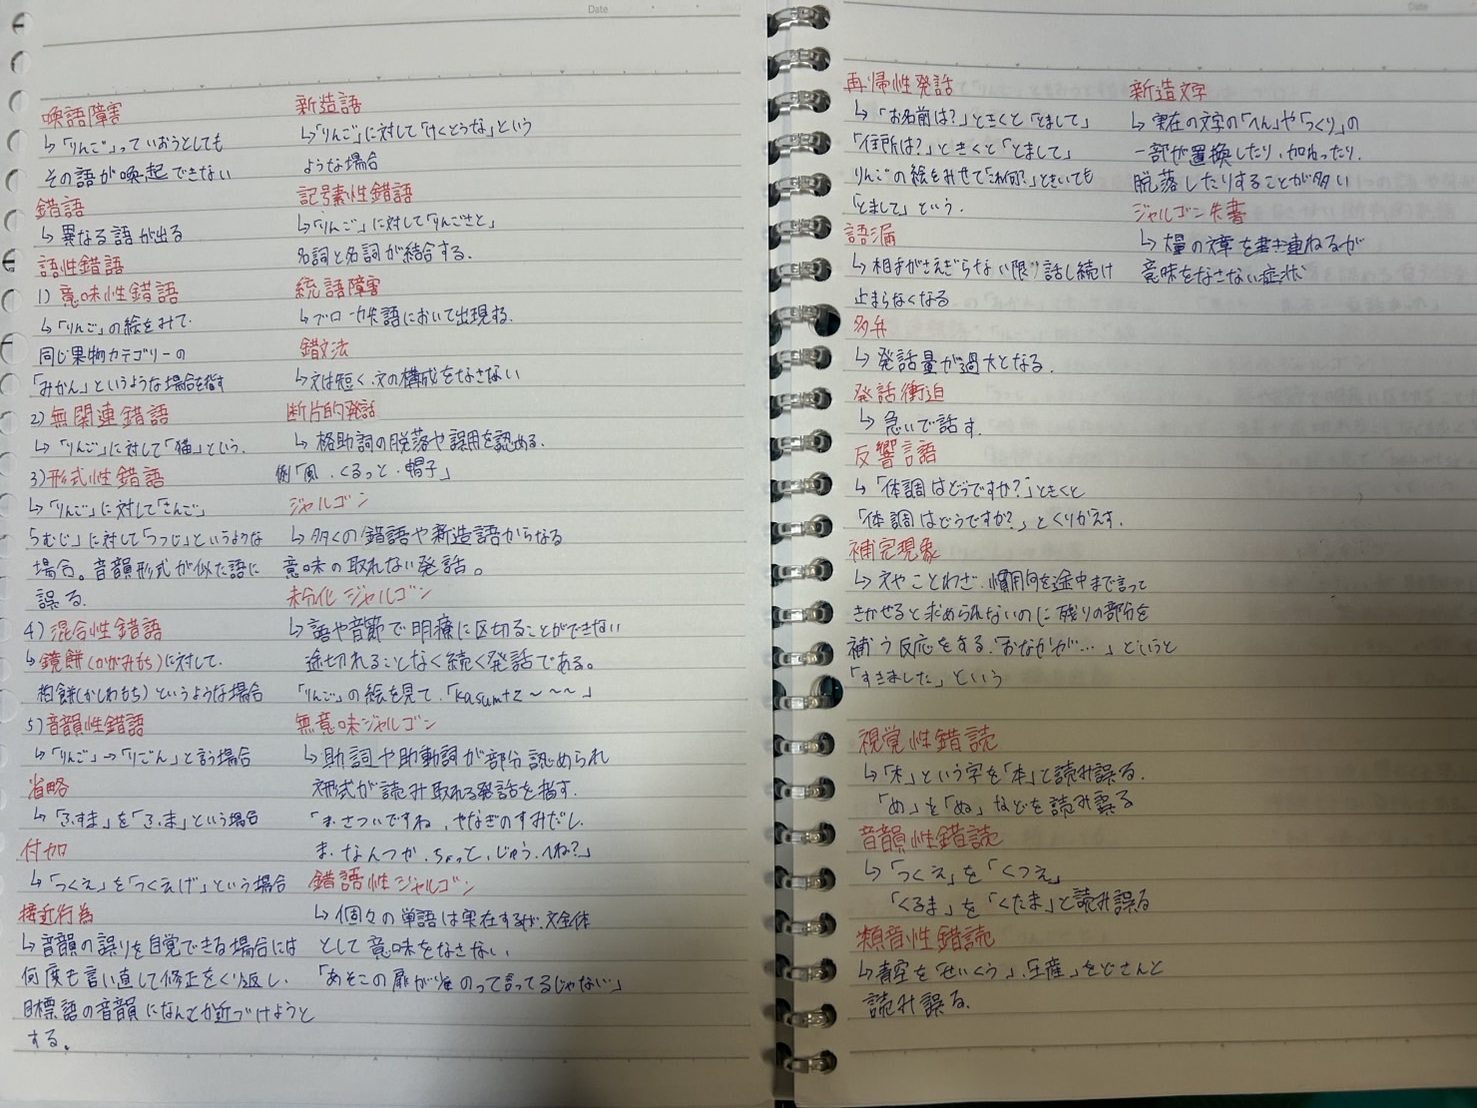 Date
喚語障害
↳「りんご」っていおうとしても
その語が喚起できない
錯語
↳ 異なる語が出る
語性錯語
1) 意味性錯語
↳「りんご」の絵をみて、
同じ果物カテゴリーの
「みかん」というような場合を指す
2) 無関連錯語
↳「りんご」に対して「猫」という.
3) 形式性錯語
↳「りんご」に対して「さんご」
「つつじ」というような
場合。音韻形式が似た語に
誤る.
4) 混合性錯語
↳ 鏡餅(かがみもち)に対して.
柏餅(かしわもち)というような場合
5) 音韻性錯語
↳「りんご」→「りごん」と言う場合
省略
↳「ふすま」を「ふ,ま」という場合
付加
↳「つくえ」を「つくえげ」という場合
接近行為
↳ 音韻の誤りを自覚できる場合には
何度も言い直して修正をくり返し.
目標語の音韻になんとか近づけようと
する。
新造語
↳「りんご」に対して「けくとうな」という
ような場合
記号素性錯語
↳「りんご」に対して「りんごさと」
名詞と名詞が結合する.
統語障害
↳ ブローカ失語において出現する.
錯文法
↳文は短く、文の構成をなさない
断片的発話
↳ 格助詞の脱落や誤用を認める.
例「風、くるっと・帽子」
ジャルゴン
↳ 多くの錯語や新造語からなる
意味の取れない発話。
未分化ジャルゴン
↳ 語や音節で明療に区切ることができない
途切れることなく続く発話である。
「りんご」の絵を見て、「kasumtz〜〜〜」
無意味ジャルゴン
↳ 助詞や助動詞が部分認められ
文形式が読み取れる発話を指す.
「ま、さついですね、やなぎのすみだし、
ま、なんつか、ちょっと、じゅう、へね?」
錯語性ジャルゴン
↳ 個々の単語は実在するが、文全体
として意味をなさない.
「あそこの扉が のって言ってるじゃない」
Date
再帰性発話
↳「お名前は?」ときくと「とまして」
「住所は?」ときくと「とまして」
りんごの絵をみせて「これ何?」ときいても
「とまして」という.
語漏
↳ 相手がさえぎらない限り話し続け
止まらなくなる
多弁
↳ 発話量が過大となる.
発話衝迫
↳ 急いで話す.
反響言語
↳「体調はどうですか?」ときくと
「体調はどうですか?」とくりかえす.
補完現象
↳ 文やことわざ、慣用句を途中まで言って
きかせると求められないのに残りの部分を
補う反応をする.「おなかが…」というと
「すきました」という
視覚性錯読
↳「木」という字を「本」と読み誤る.
「め」を「ぬ」などを読み誤る
音韻性錯読
↳「つくえ」を「くつえ」
「くるま」を「くたま」と読み誤る
類音性錯読
↳青空を「せいくう」、「土産」をどさんと
読み誤る.
新造文字
↳ 実在の文字の「へん」や「つくり」の
一部が置換したり、加わったり、
脱落したりすることが多い
ジャルゴン失書
↳ 大量の文章を書き連ねるが
意味をなさない症状